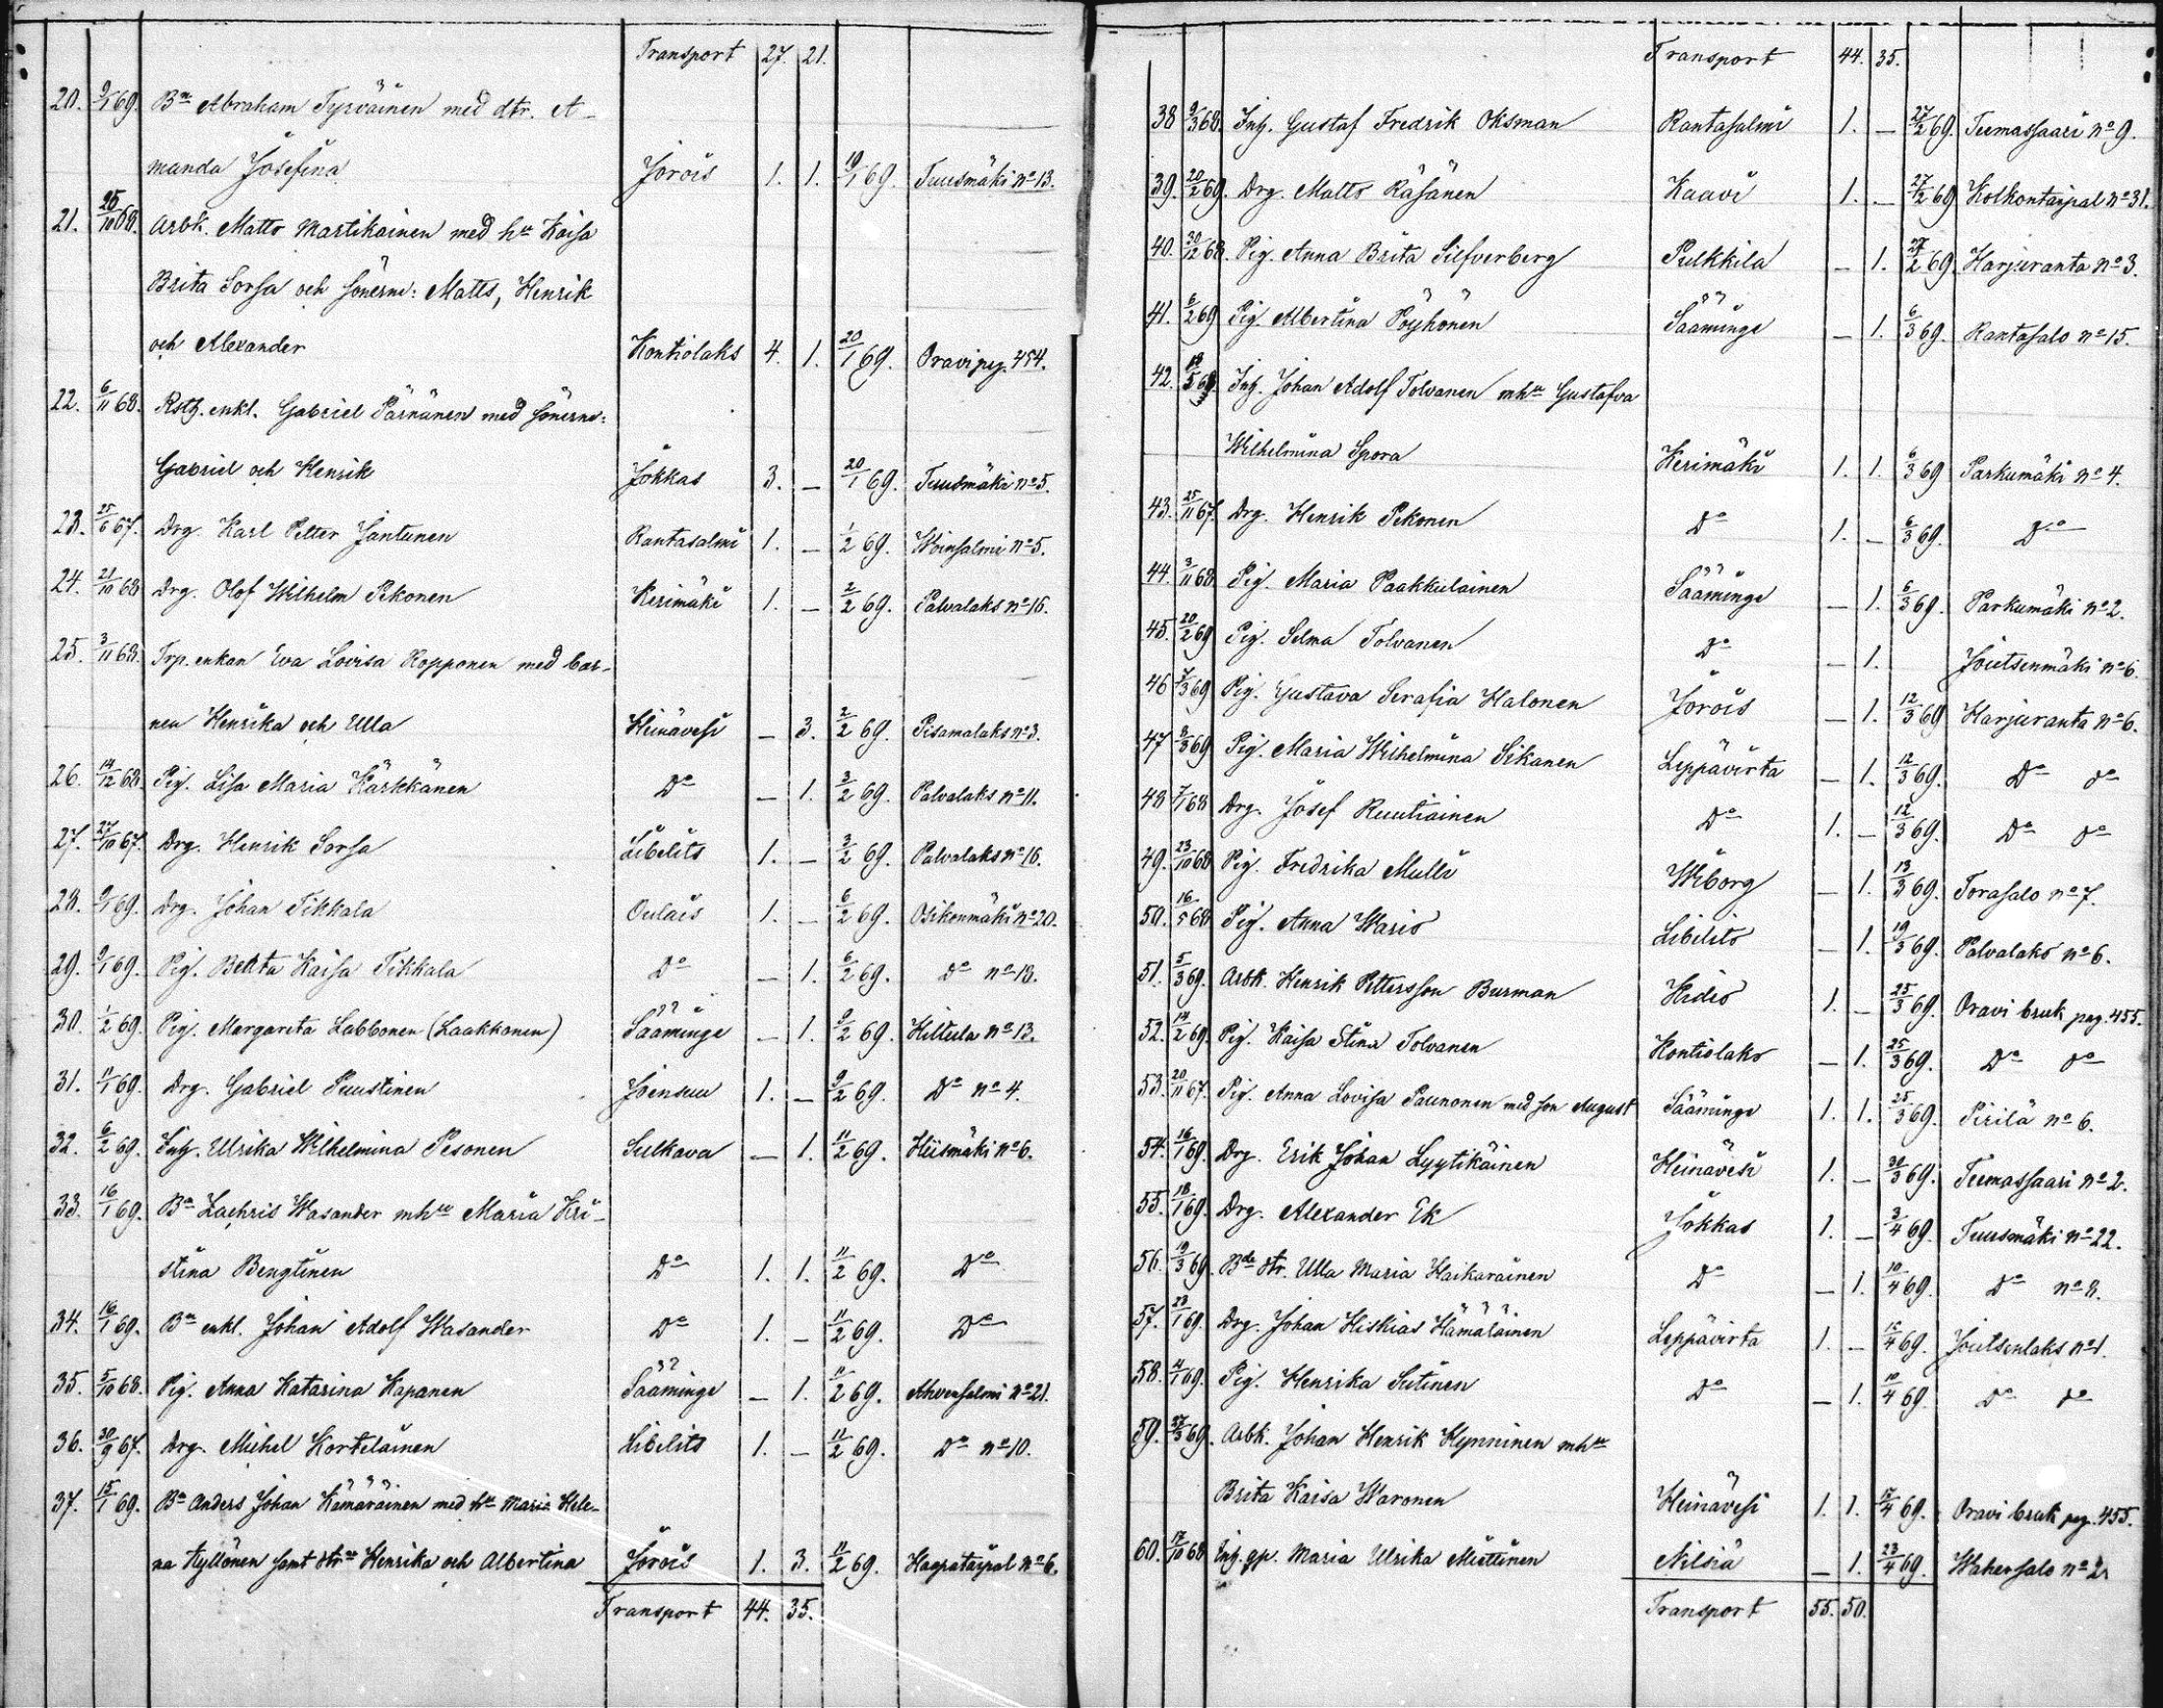 Transport 27. 21.
20. 9/1 69. Bn Abraham Tyrväinen med dtr. A-
manda Josefina Jorois 1. 1. 19/1 69. Tuusmäki No 13.
21. 26/10 68. Arbk. Matts Martikainen med hu Kaisa
Brita Sorsa och sönerne: Matts, Henrik
och Alexander Kontiolaks 4. 1. 20/1 69. Oravi pg. 454.
22. 6/11 68. Rstg. enkl. Gabriel Pärnänen med sönerne:
Gabriel och Henrik Jokkas 3. — 20/1 69. Tuusmäki No 5.
23. 25/6 67. Drg. Karl Petter Jantunen Rantasalmi 1. — 1/2 69. Woinsalmi No 5.
24. 21/10 68 Drg. Olof Wilhelm Pekonen Kerimäki 1. — 2/2 69. Palvalaks No 16.
25. 3/11 68. Trp. enkan Eva Lovisa Kopponen med bar-
nen Henrika och Ulla Heinävesi — 3. 2/2 69. Pisamalaks No 3.
26. 14/12 68. Pig. Lisa Maria Kärkkänen Do — 1. 3/2 69. Palvalaks No 11.
27. 27/10 67. Drg. Henrik Sorsa Libelits 1. — 3/2 69. Palvalaks No 16.
28. 9/1 69. Drg. Johan Tikkala Oulais 1. — 6/2 69. Osikonmäki No 20.
29. 9/1 69. Pig. Beata Kaisa Tikkala Do — 1. 6/2 69. Do No 18.
30. 1/2 69. Pig. Margareta Labbonen (Laakkonen) Sääminge — 1. 9/2 69. Hiltula No 13.
31. 11/1 69. Drg. Gabriel Puustinen Joensuu 1. — 9/2 69. Do No 4.
32. 6/2 69. Inh. Ulrika Wilhelmina Pesonen Sulkava — 1. 11/2 69. Hiismäki No 6.
33. 16/1 69. Bn Zachris Wasander mhu Maria Kri-
stina Bengtinen Do 1. 1. 11/2 69. Do
34. 16/1 69. Bn enkl. Johan Adolf Wasander Do 1. — 11/2 69. Do
35. 5/10 68. Pig. Anna Katarina Kapanen Sääminge — 1. 11/2 69. Ahvensalmi No 21.
36. 30/9 67. Drg. Mickel Kortelainen Libelits 1. — 11/2 69. Do No 10.
37. 15/1 69. Bn Anders Johan Kämäräinen med hu Maria Hele-
na Kyllönen samt dtrar Henrika och Albertina Jorois 1. 3. 11/2 69. Hagrataipal No 6.
Transport 44. 35.
Transport 44. 35.
38 9/3 68. Inh. Gustaf Fredrik Oksman Rantasalmi 1. — 27/2 69. Teemassaari No 9.
39. 20/2 69. Drg. Matts Räsänen Kaavi 1. — 27/2 69 Kolkontaipal No 31.
40. 30/12 68. Pig. Anna Brita Silfverberg Pulkkila — 1. 27/2 69. Harjuranta No 3.
41. 6/2 69 Pig. Albertina Pöyhönen Sääminge — 1. 6/3 69. Rantasalo No 15.
42. Inh. Johan Adolf Tolvanen mhu Gustafva
Wilhelmina Spora Kerimäki 1. 1. 6/3 69 Parkumäki No 4.
43. 25/11 67. Drg. Henrik Pekonen Do 1. — 6/3 69. Do
44. 3/11 68 Pig. Maria Paakkulainen Sääminge — 1. 6/3 69. Parkumäki No 2.
45. 20/2 69 Pig. Selma Tolvanen Do — 1. Joutsenmäki No 6.
46 7/3 69 Pig. Gustava Serafia Halonen Jorois — 1. 12/3 69 Harjuranta No 6.
47 8/3 69 Pig. Maria Wilhelmina Sikanen Leppävirta — 1. 12/3 69. Do do
48 7/1 68 Drg. Josef Ruutiainen Do 1. — 12/3 69. Do do
49. 23/10 68 Pig. Fredrika Mulli Wiborg — 1. 13/3 69. Torasalo No 7.
50. 16/5 68 Pig. Anna Waris Libilits — 1. 19/3 69. Palvalaks No 6.
51. 5/3 69. Arbk. Henrik Pettersson Burman Kides 1. — 25/3 69. Oravi bruk pag. 455.
52. 14/2 69. Pig. Kaisa Stina Tolvanen Kontiolaks — 1. 25/3 69. Do do
53. 20/11 67. Pig. Anna Lovisa Paunonen med son August Sääminge 1. 1. 25/3 69. Pirilä No 6.
54. 16/1 69. Drg. Erik Johan Lyytikäinen Heinävesi 1. — 31/3 69. Teemassaari No 2.
55. 18/1 69. Drg. Alexander Ek Jokkas 1. — 3/4 69. Tuusmäki No 22.
56. 19/3 69. Bde dtr. Ulla Maria Haikarainen Do — 1. 10/4 69. Do No 8.
57. 23/1 69. Drg. Johan Hiskias Hämäläinen Leppävirta 1. — 4 69. Joutsenlaks No 1.
58. 4/1 69. Pig. Henrika Sutinen Do — 1. 10/4 69 Do do
59. 27/3 69. Arbk. Johan Henrik Hynninen mhu
Brita Kaisa Waronen Heinävesi 1. 1. 17/4 69. Oravi bruk pag. 455.
60. 17/10 68 Inh. gp. Maria Ulrika Miettinen Nilsiä — 1. 23/4 69. Wahersalo No 2.
Transport 55. 50.